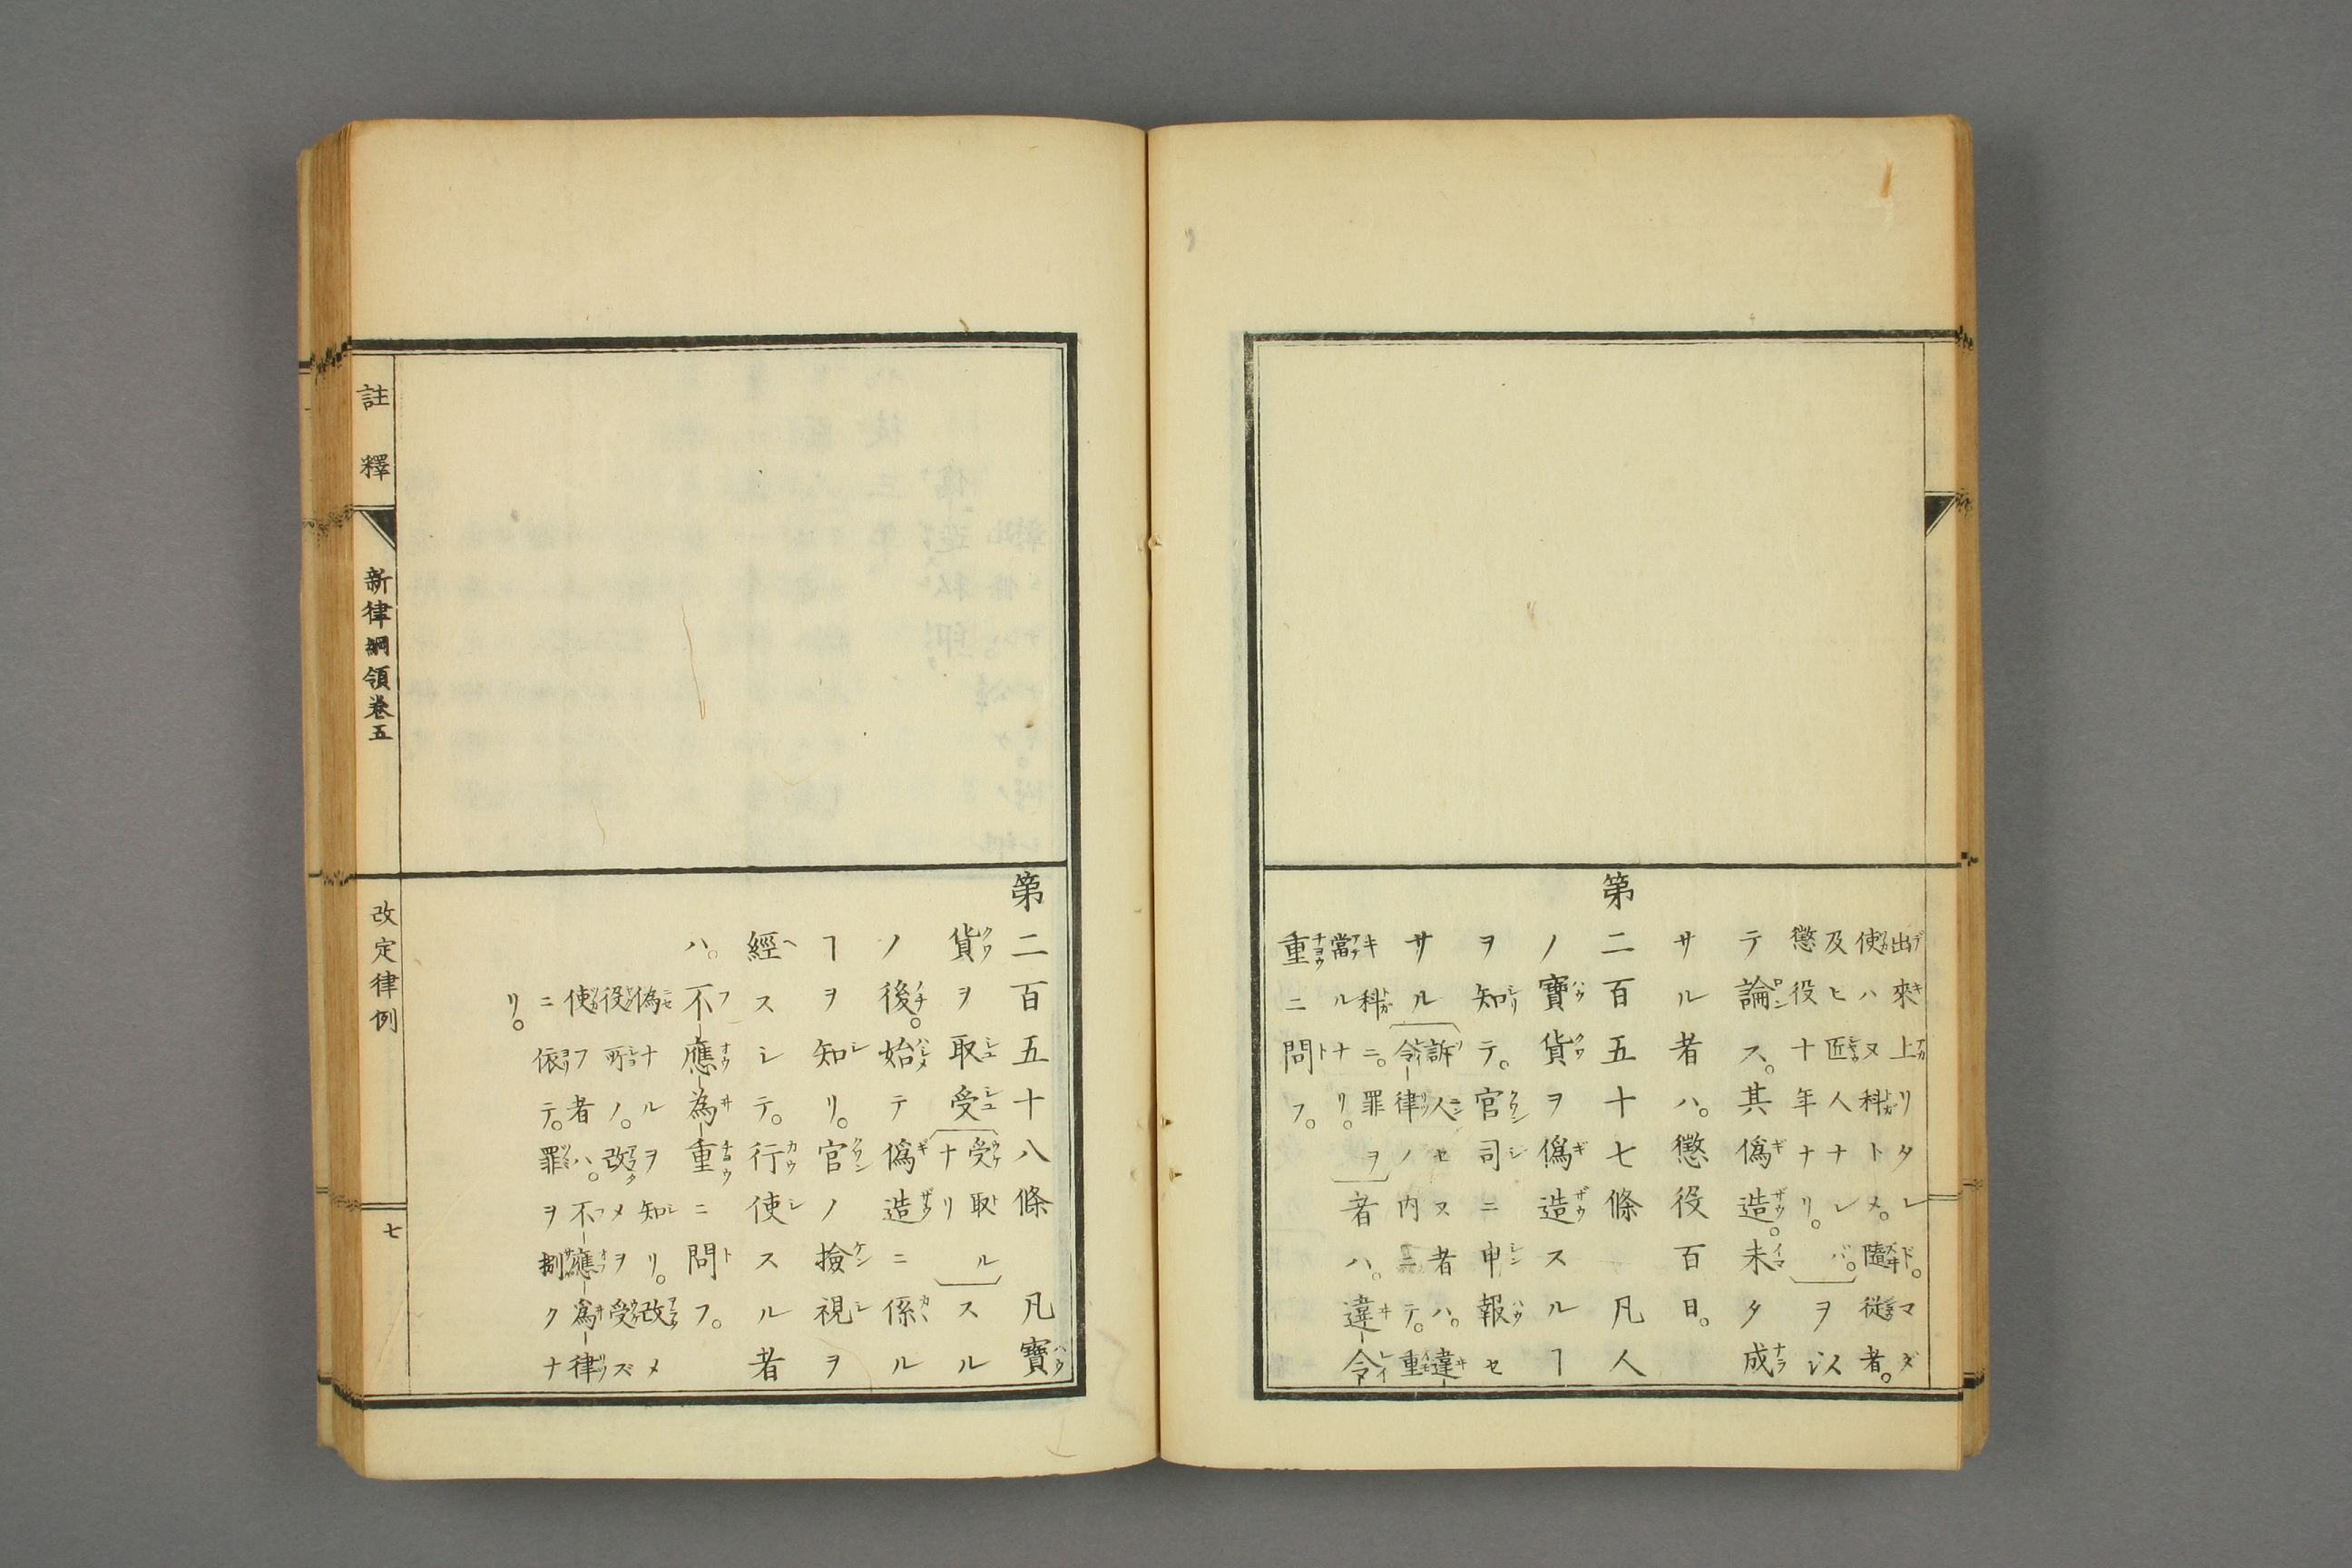 出來上リタレド。マダ
使ハヌ科トメ。隨從者。
及ヒ匠人ナレバ。
懲役十年ナリ。ヲ以
テ論ス。其僞造。未タ成
サル者ハ。懲役百日。
第二百五十七條 凡人
ノ寶貨ヲ僞造スルヿ
ヲ知テ。官司ニ申報セ
サル訴人セヌ者ハ。違
令律ノ内ニテ。重
キ科ニ。罪ヲ
當ルナリ。者ハ。違令
重ニ問フ。
第二百五十八條 凡寶
貨ヲ取受受取ルナリスル
ノ後。始テ僞造ニ係ル
ヿヲ知リ。官ノ撿視ヲ
經スシテ。行使スル者
ハ。不應為重ニ問フ。
僞ナルヲ知リ。改メ
役所ノ。改メヲ受ズ
使フ者ハ。不應爲律
ニ依テ。罪ヲ捌クナ
リ。
註釋 新律綱領卷五 改定律例 七